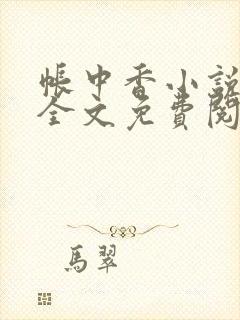 帳中香小說
全文免費閱
馬翠